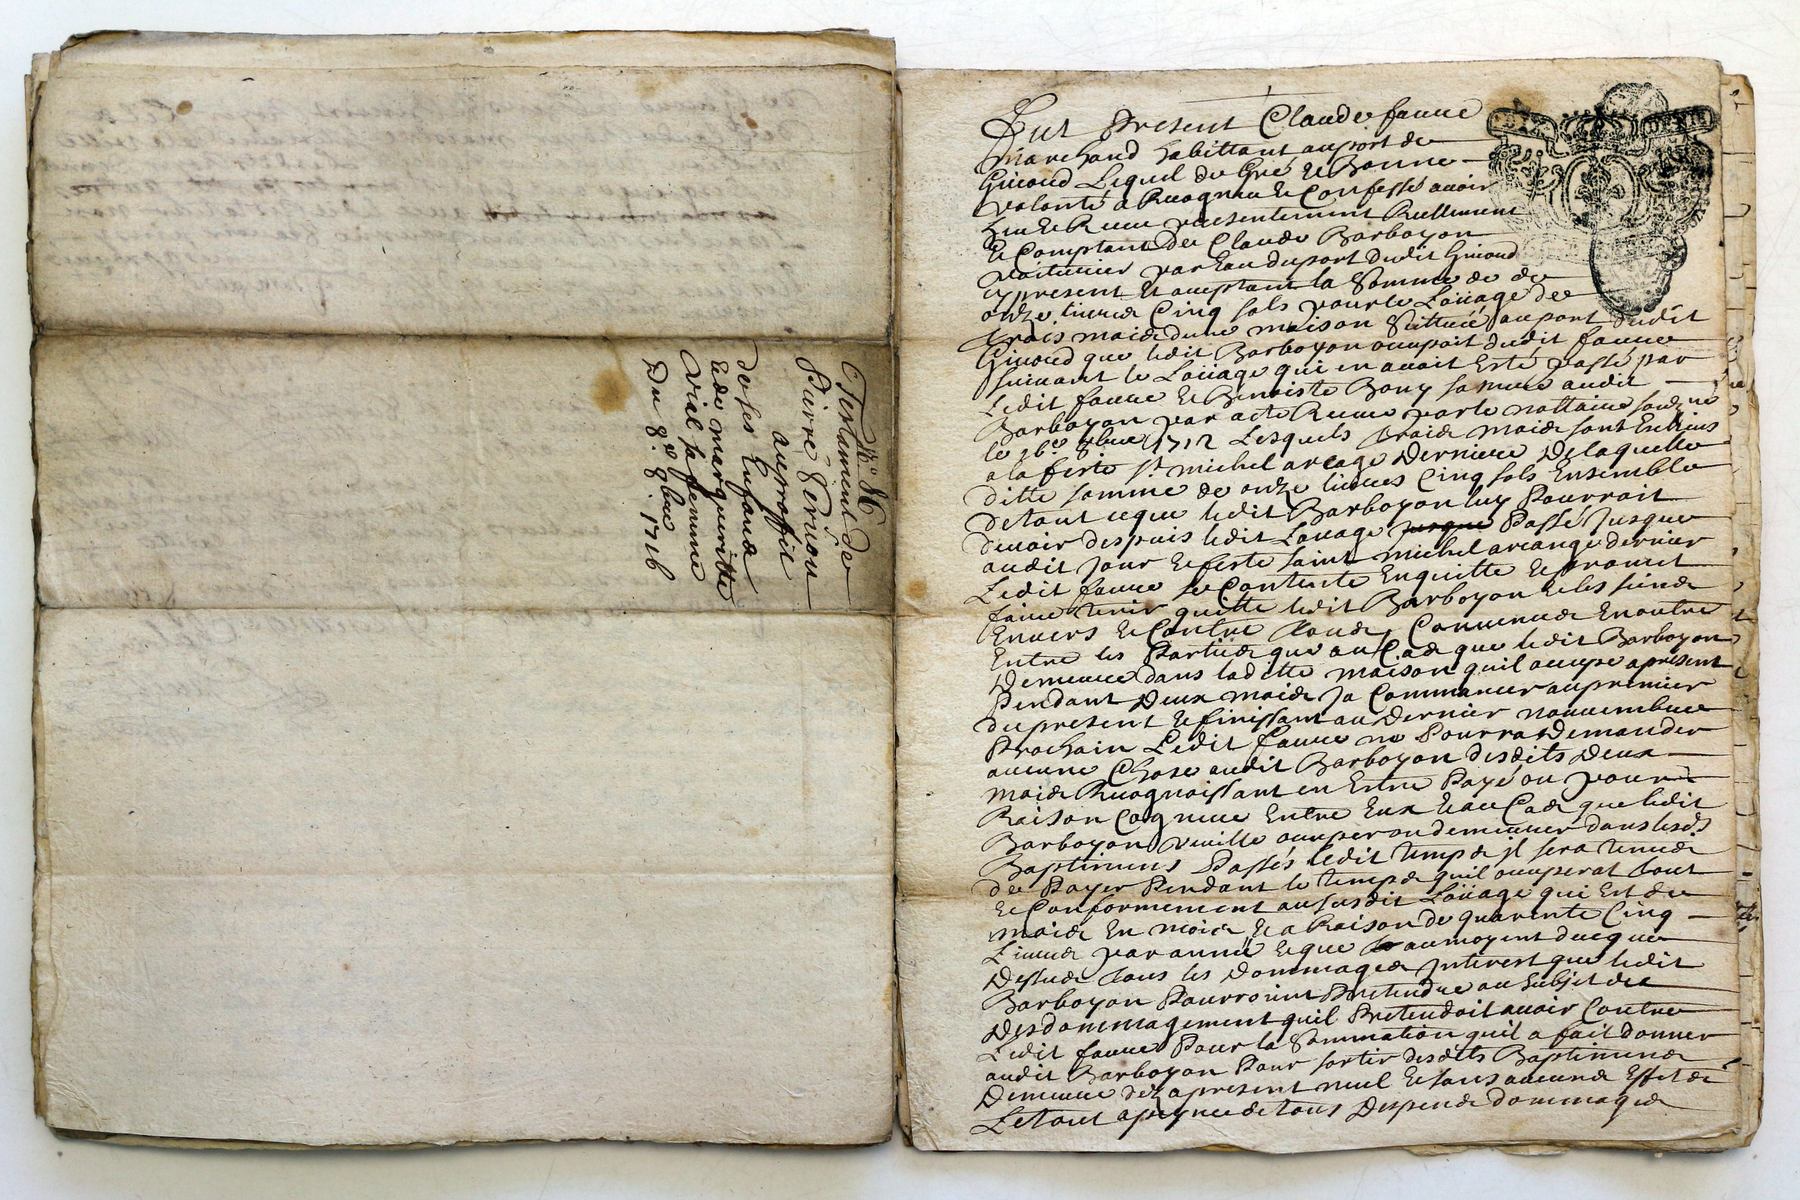 N.o 86
Testament de
Pierre Perron
au proffit
de ses Enfans
et de margueritte
Vial sa femme
Du 8.e 8bre 1716
Fut Present Claude faure
Marchand habittant au port de
Giuord Lequel de Gré et Bonne
volonté a Recogneu et Confessé auoir
heu et Receu presentement Reellement
et Comptant de Claude Barboyon
voiturier par Eau du port dudit Giuord
cy present et acceptant la Somme de de
onze liures Cinq sols pour le Loüage de
trois mois dune maison Sittuée au port dudit
Giuord que ledit Barboyon occupoit dudit faure
suiuant le Loüage qui en auoit Esté passé par
Ledit faure et Benoiste Bouy sa mere audit
Barboyon par acte Receu par le nottaire souzne
le 26.e 8bre 1712 Lesquels trois mois sont Echeus
a la feste st michel arcage Derniere De laquelle
ditte somme de onze liures Cinq sols Ensemble
de tout ce que ledit Barboyon luy Pourroit
deuoir despuis ledit Louage jusque Passé Jusque
audit jour et feste saint michel arcange dernier
Ledit faure se Contente En quitte et promet
faire tenir quitte ledit Barboyon et les siens
Enuers et Contre tous, Conuenus En outre
Entre les Parties que au Cas que ledit Barboyon
Demeure dans la ditte maison quil occupe apresent
Pendant Deux mois Ja Commancer au premier
du present et finissant au Dernier nouuembre
Prochain Ledit faure ne Pourra Demander
aucune Chose audit Barboyon desdits Deux
mois Recognoissant en Estre Payé ou pour
Raison Cogneue Entre Eux et au Cas que ledit
Barboyon Veuille occuper ou demeurer dans lesds
Baptimens Passés ledit temps jl sera tenus
de Payer Pendant le temps quil occuperat tout
et Conformement au susdit Loüage qui Est de
mois En mois et a Raison de quarente Cinq
Liures par année et que au moyent du que
Dessus tous les Dommages jnterest que ledit
Barboyon Pourroient Pretendre au Subjet de
Desdommagement quil Pretendoit auoir Contre
Ledit faure Pour la Sommation quil a fait donner
audit Barboyon Pour sortir desdits Baptimens
Demeure dez apresent nul et sans aucuns Effet
Le tout a peyne de tous Despens dommages